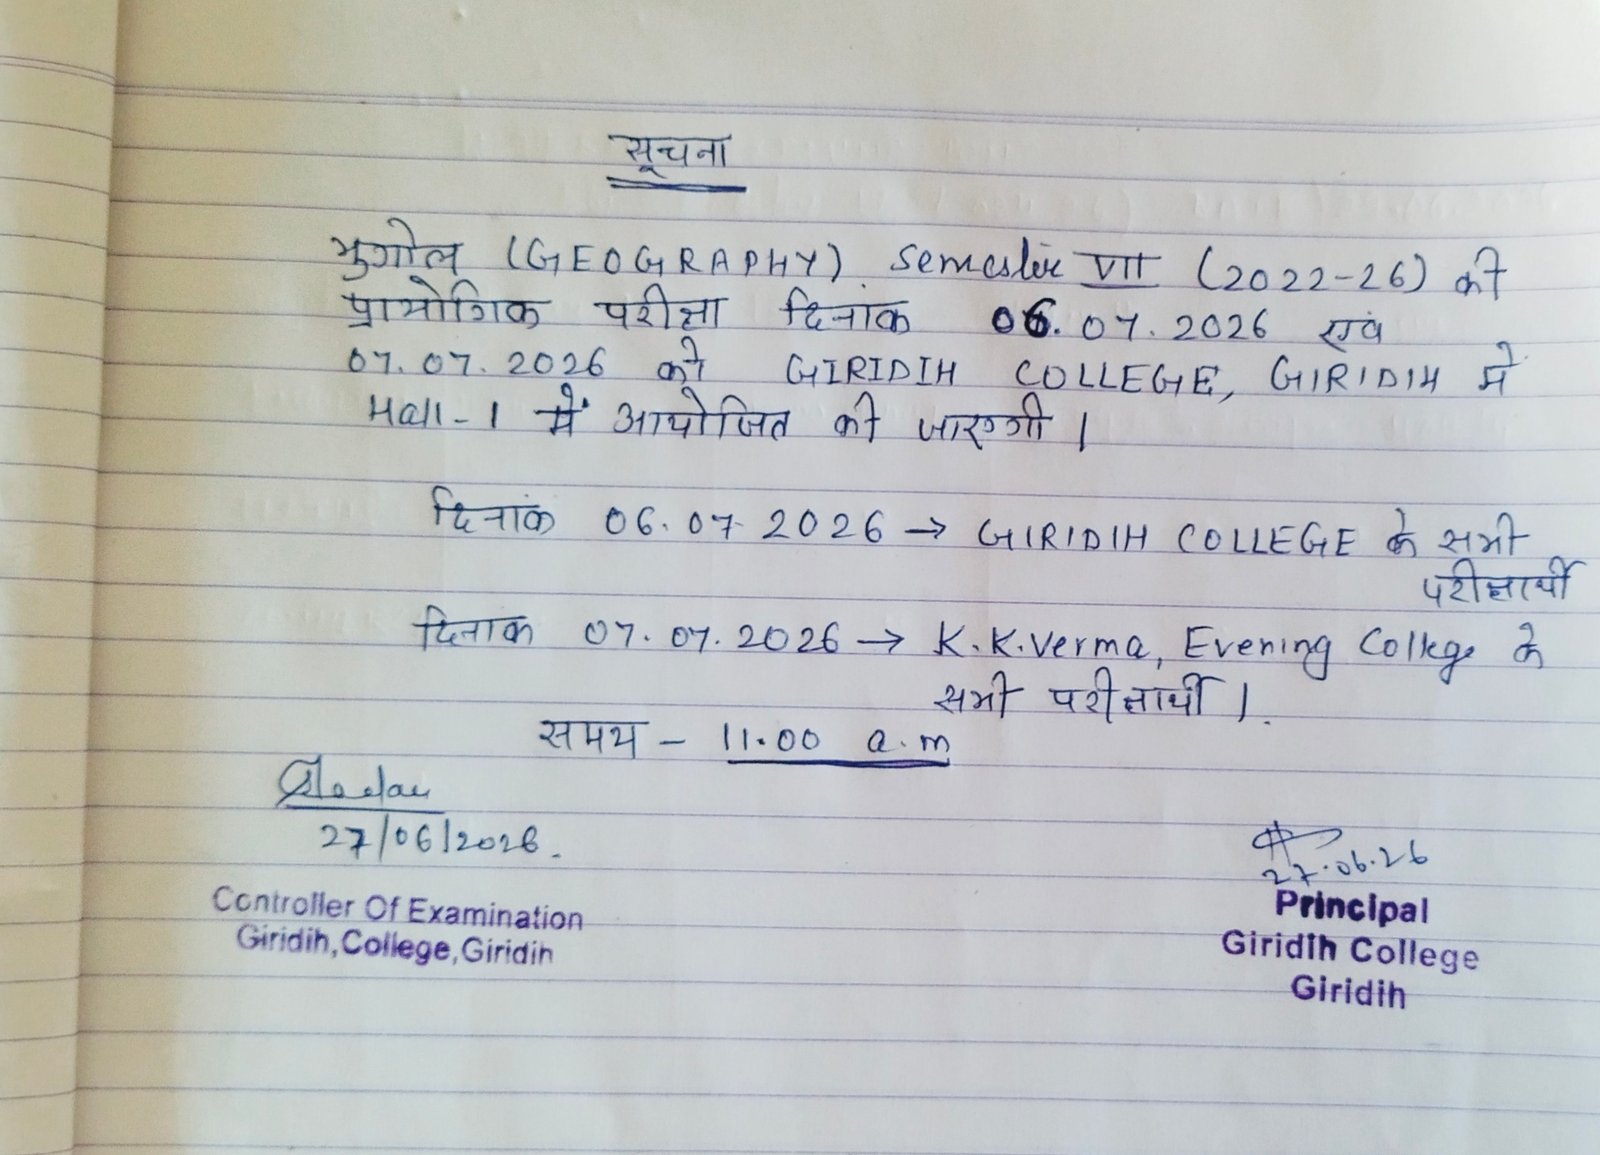 सूचना
भुगोल (GEOGRAPHY) Semester VII (2022-26) की
प्रायोगिक परीक्षा दिनांक 06.07.2026 एवं
07.07.2026 को GIRIDIH COLLEGE, GIRIDIH मे
Hall-1 में आयोजित की जाएगी ।
दिनांक 06.07.2026 → GIRIDIH COLLEGE के सभी
परीक्षार्थी
दिनाक 07.07.2026 → K.K.Verma, Evening College के
सभी परीक्षार्थी ।
समय - 11.00 a.m
27/06/2026.
27.06.26
Controller Of Examination
Giridih,College,Giridih
Principal
Giridih College
Giridih